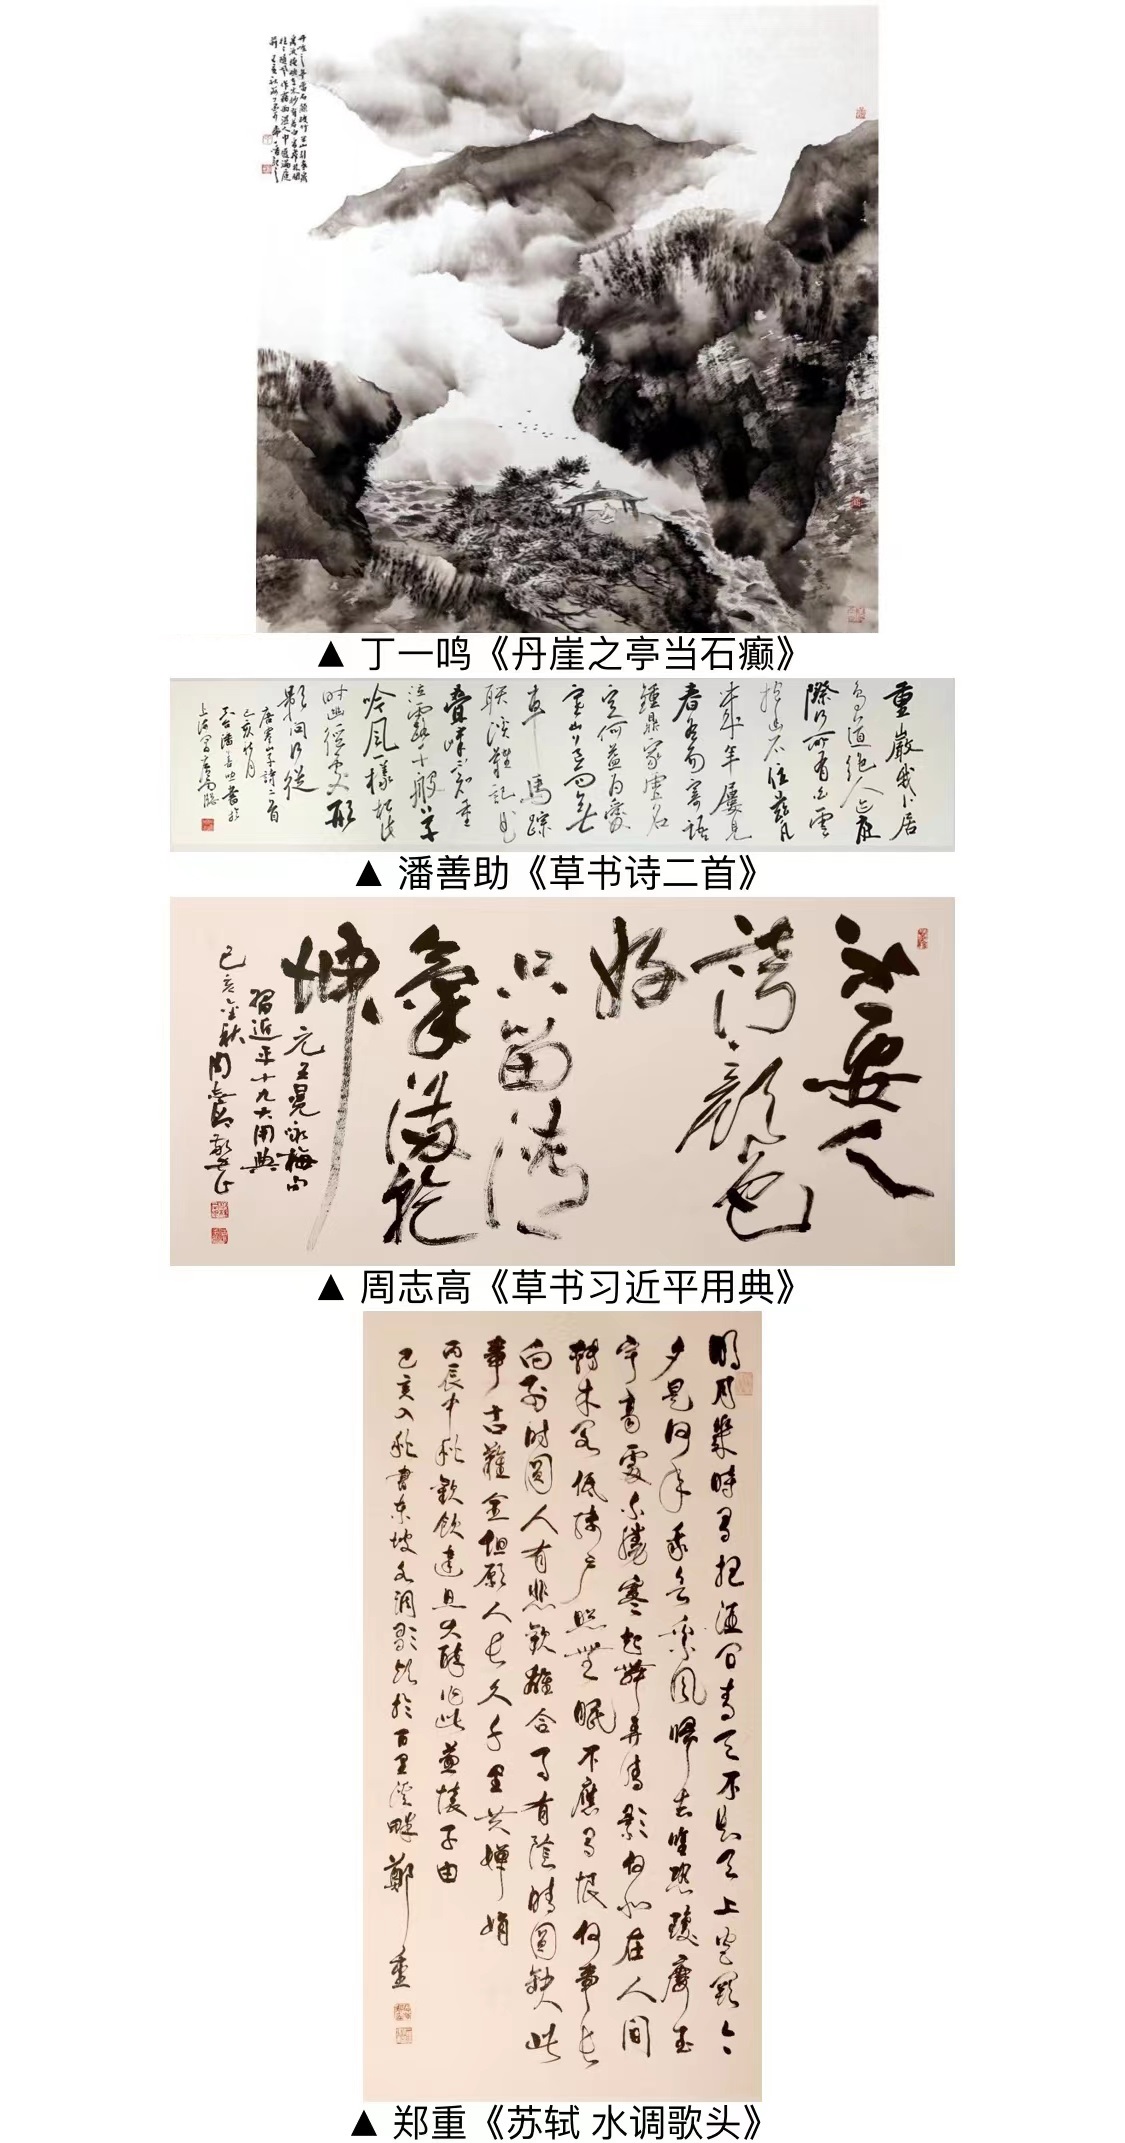 ▲ 丁一鸣《丹崖之亭当石癫》
重巖我卜居
鳥道絕人迹庭
際何所有白雲
抱幽石住兹凡
年屢見
春冬易寄語
鍾鼎家虛名
定何益
寒山道
車馬蹤
聯溪難記曲
疊嶂不知重
泣露千般草
吟風一樣松此
時迷徑處形
影問何從
唐寒山子詩二首
己亥秋月
▲ 潘善助《草书诗二首》
不要人
誇顏色
好
只留清
氣滿乾
坤
元王冕咏梅句
習近平十九大用典
己亥金秋周志高
▲ 周志高《草书习近平用典》
明月幾時有把酒問青天不知天上宮闕今
夕是何年我欲乘風歸去唯恐瓊樓玉
宇高處不勝寒起舞弄清影何似在人間
轉朱閣低綺户照無眠不應有恨何事長
向別時圓人有悲歡離合月有陰晴圓缺此
事古難全但願人長久千里共嬋娟
丙辰中秋歡飲達旦大醉作此兼懷子由
己亥入秋書東坡水調歌頭於百里溪畔鄭重
▲ 郑重《苏轼 水调歌头》